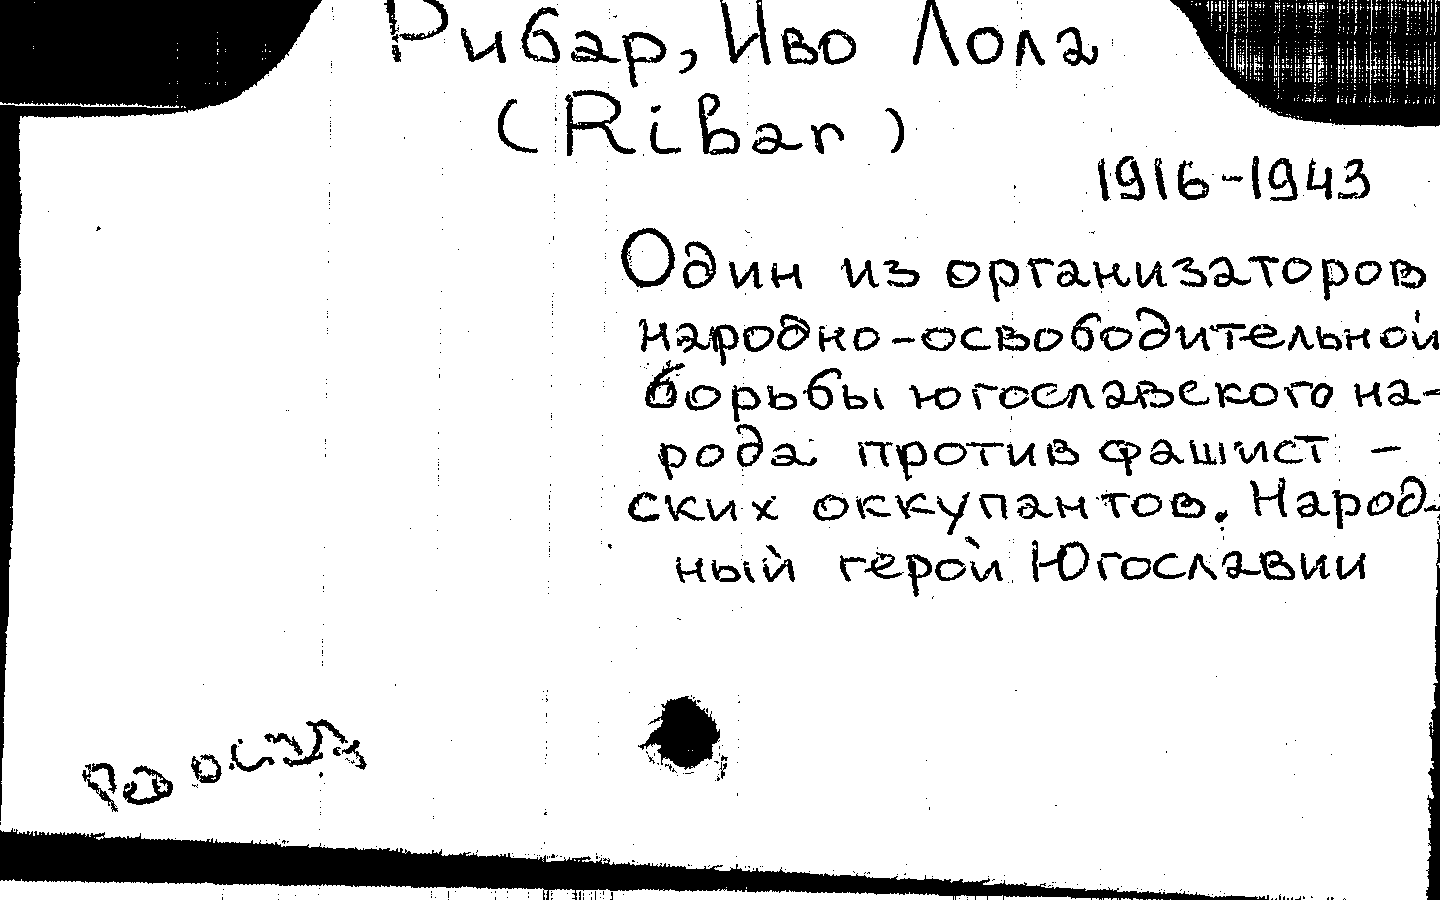 Рибар, Иво Лола
(Ribar)
1916-1943
Один из организаторов
народно-освободительной
борьбы югославского на-
рода против фашист-
ских оккупантов. Народ-
ный герой Югославии